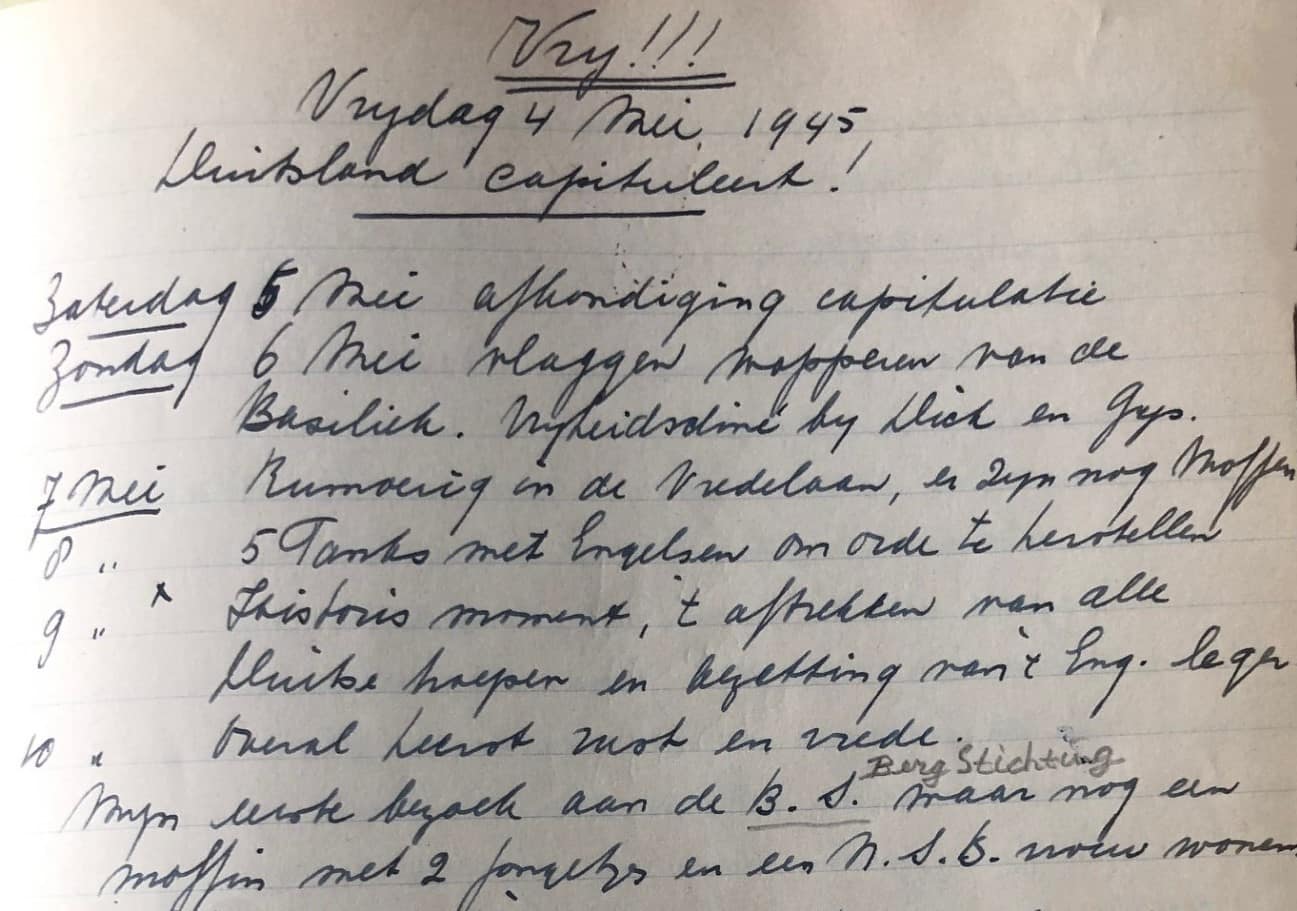 Vry!!!
Vrydag 4 Mei, 1945,
Duitsland capituleert!
Zaterdag 5 Mei afkondiging capitulatie
Zondag 6 Mei vlaggen wapperen van de
Basiliek. Vryheidsdiné by Dick en Gys.
7 Mei Rumoerig in de Vredelaan, er zyn nog Moffen
8 " 5 Tanks met Engelsen om orde te herstellen
9 " x Historis moment, 't aftrekken van alle
Duitse troepen en bezetting van 't Eng. leger
10 " Overal heerst rust en vrede.
Berg Stichting
Myn eerste bezoek aan de B. S. waar nog een
moffin met 2 jongetjes en een N.S.B. vrouw wonen